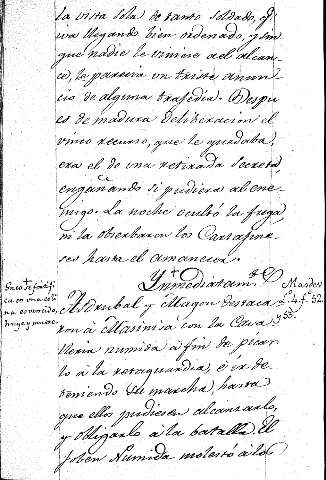 la vista sola de tanto soldado, q.
iva llegando bien ordenado, y sin
que nadie le viniese a el alcan-
ce, le parecia un triste anun-
cio de alguna trajedia. Despu-
es de madura deliberacion el
vnico recurso, que le quedaba,
era el de una retirada secreta
engañando si pudiera al ene-
migo. La noche ocultò la fuga
ni la observaron los Cartagine-
ses hasta el amanecer.
Ynmediatam.te
Asdrubal y Magon destaca
ron à Masinisa con la Cava
lleria numida a fin de picar
lo à la retaguardia, è ir de-
teniendo su marcha, hasta
que ellos pudiesen alcanzarlo,
y obligarlo à la batalla. El
Joben Numida molestò à los
se fortifi
ca en una coli
na es vencido,
huye y muere.
Masdeu
t. 4 f. 52.
y 53